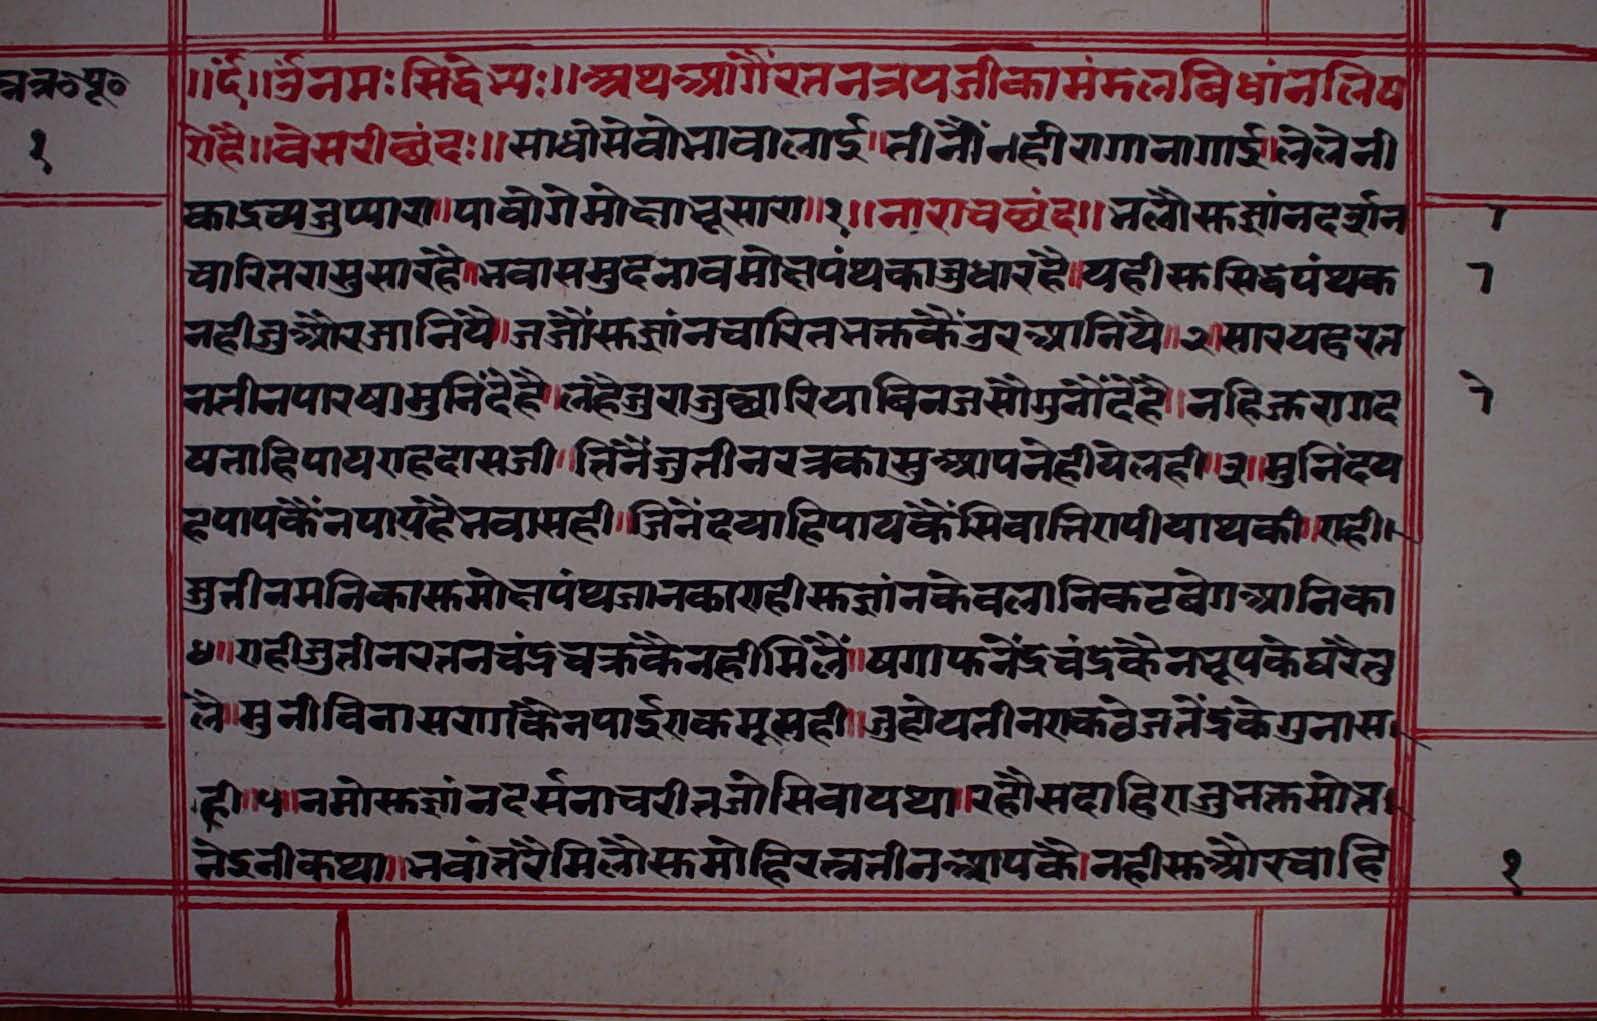 त्रत्र०पू०
१
॥र्द॥र्उनमःसिद्धेभ्यः॥अथआगैंरतनत्रयजीकामंमलबिधांनलिष
रोहै॥वेसरीछंदः॥साधोसेवोभावालाई॥तीनौंनहीरागानागाई॥लेलेनी
काद्रव्यजुप्यारा॥पावोगेमोक्षाभूसारा॥१॥नाराचछंद॥भलौसज्ञांनदर्शन
चारितरासुसारहै॥भवासमुदनावमोक्षपंथकाजुधारहै॥यहीससिद्धपंथक
नहीजुऔरजानियै॥जजौंसज्ञांनचारितभक्तकैंउरआनियै॥२॥सारयहरत्न
नतीनपारषामुनिंदेहै॥लहैजुराजुछारियाबिनजसौगुनौंदेहै॥नहिक्तरागद
षताहिपायराहदासजी॥तिनैंजुतीनरत्रकासुआपनेहीयेलही॥३॥मुनिंदय
हपापकैंनपायहैभवासही॥जिनेंदयाहिपायकैंसिवात्तिरापीयाथकी॥राही
जुतीनमनिकासमोक्षपंथजानकाराहीसज्ञांनकेवलानिकटबेगआनिका
४॥राहीजुतीनरतनचंद्रचक्रकैनहीमिलैं॥षगाफनेंद्रचंद्रकैनभूपकेघरैतु
ले॥मुनीविनासरागकैनपाईराकमूसही॥जुहोयतीनराकठेजनेंद्रकेगुनास
ही॥५॥नमोसज्ञांनदर्सनाचरीतजोसिवायथा॥रहौसदाहिराजुभक्तमोत
नेइनीकथा॥भवांतरैमिलौसमोहिरत्नतीनआपकै।नहीसऔरचाहि
१